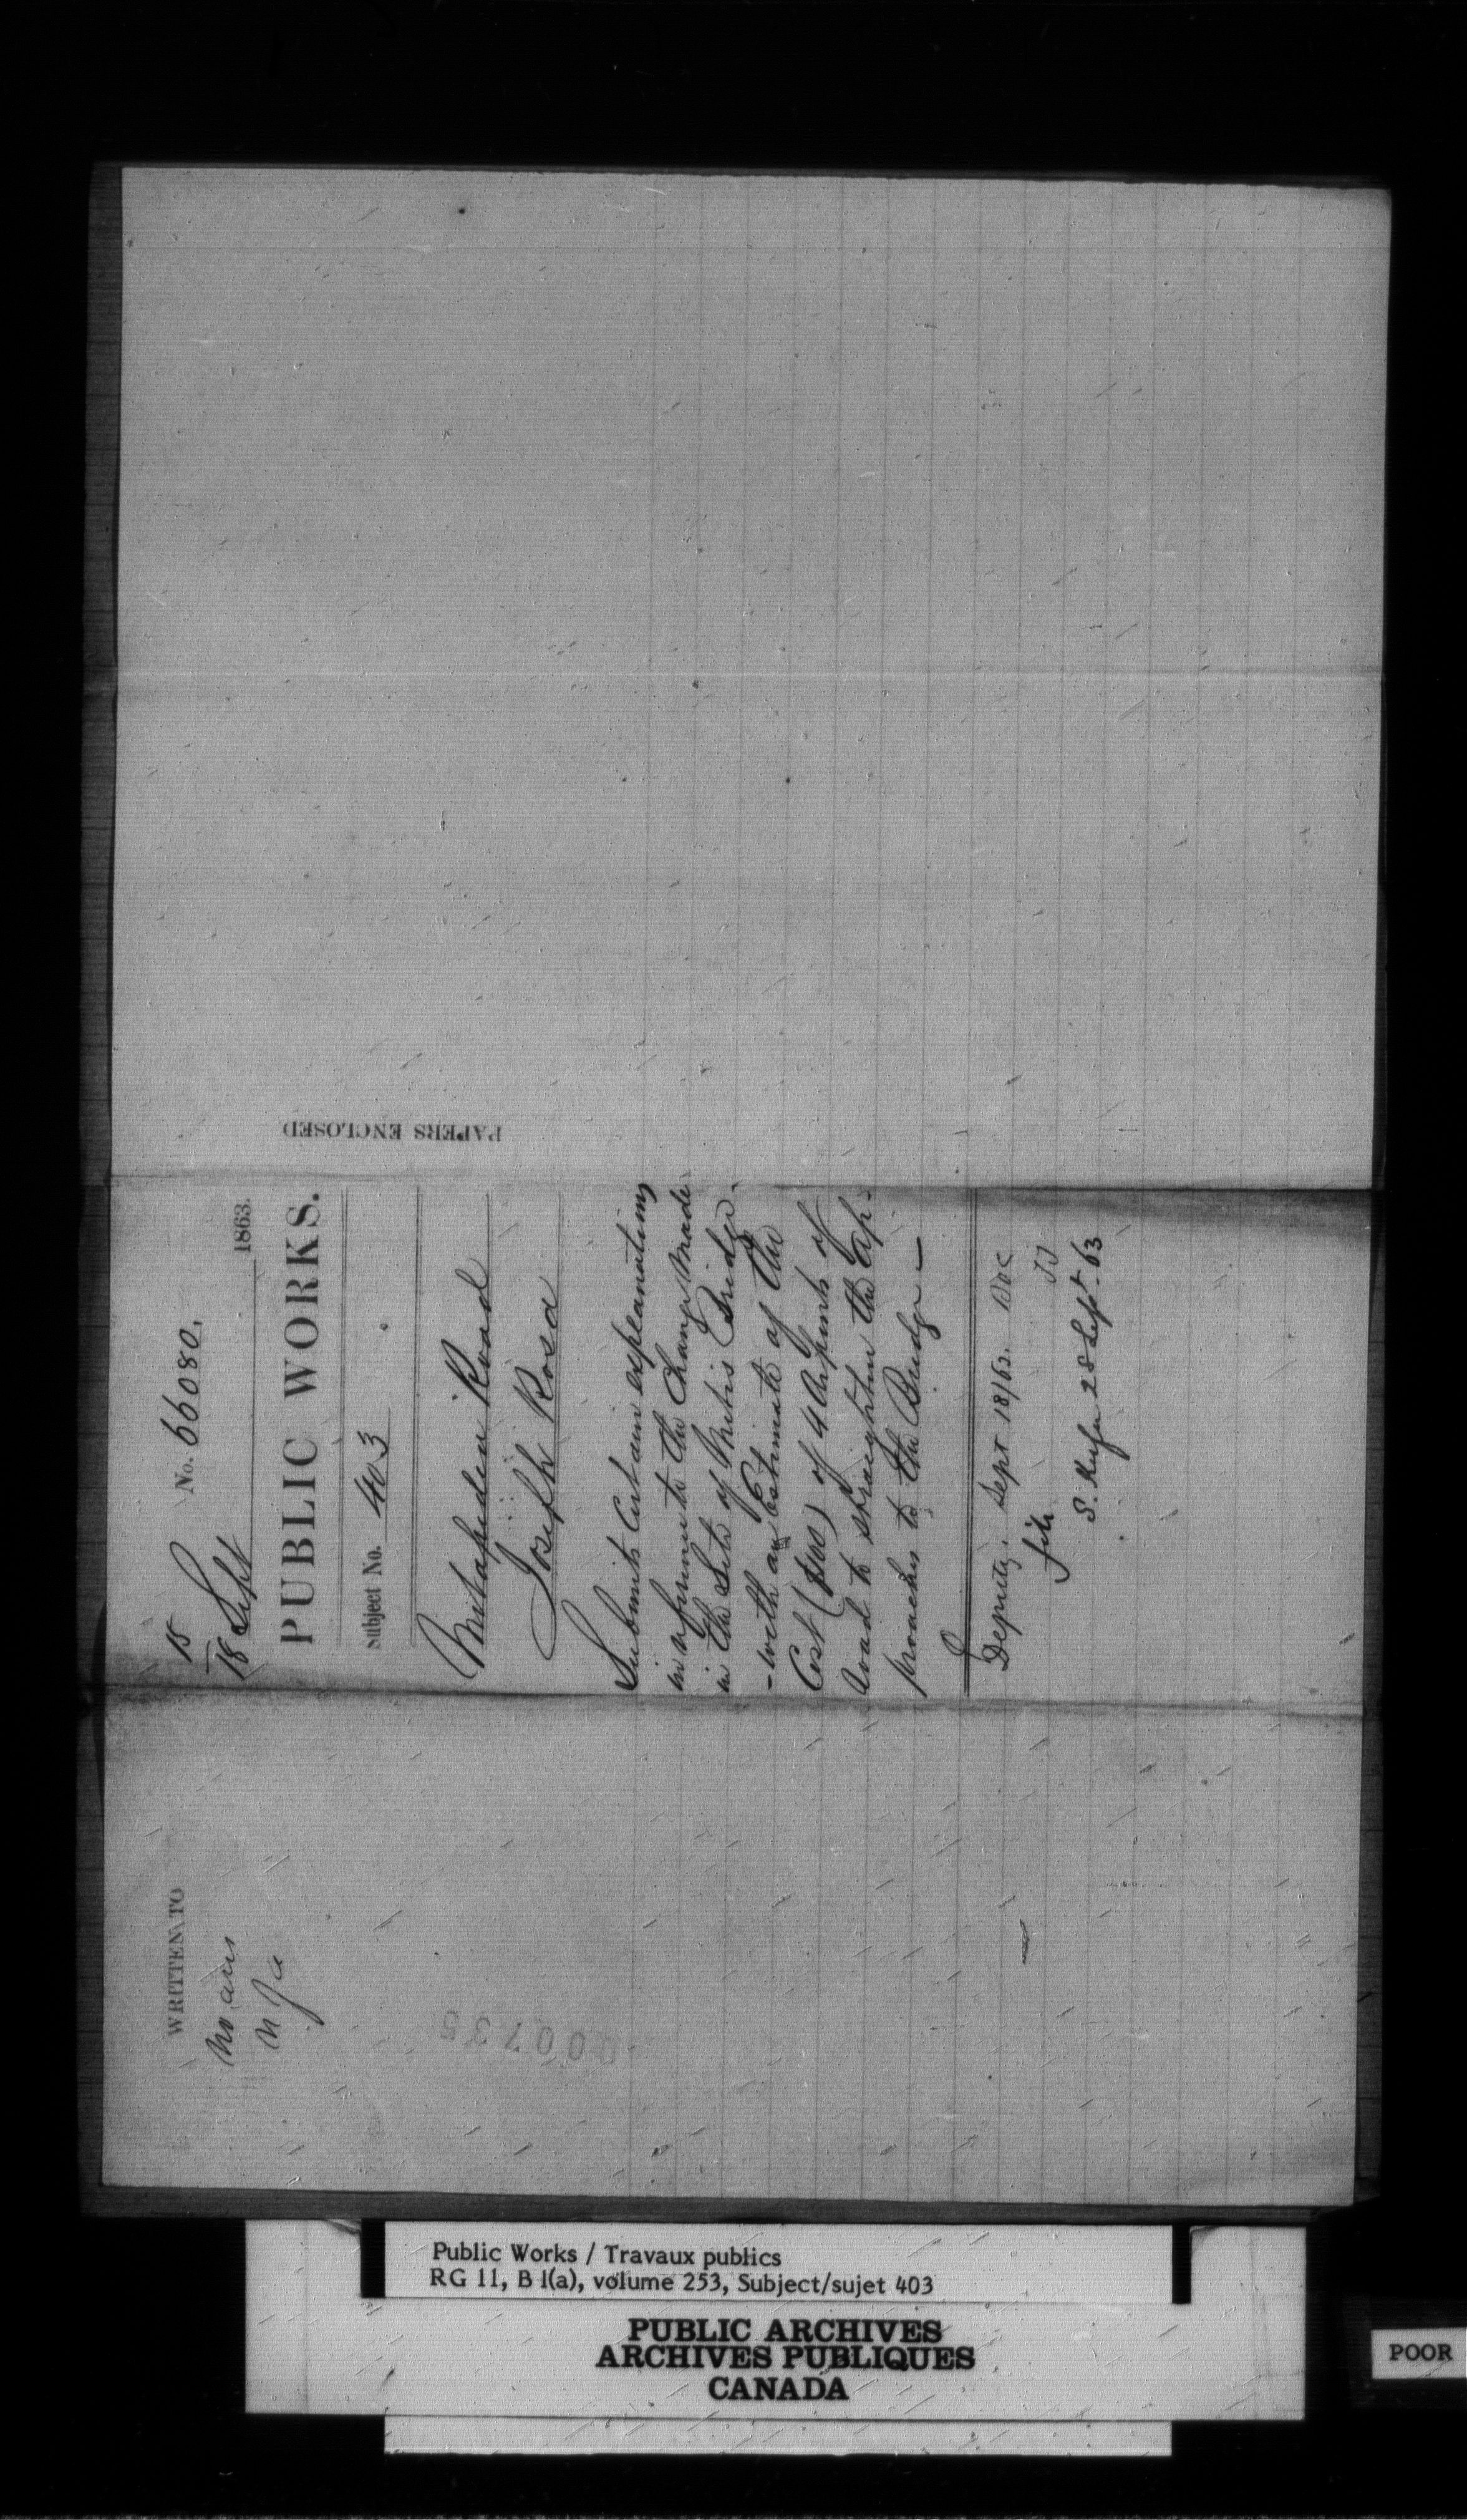 15
18 Sept
No. 66080.
1863.
PUBLIC WORKS.
Subject No. 403
Metapedia Road
Joseph Rosa
Submits Certain explanations
in reference to the Change Made
in the Site of Metis Bridge.
- with an Estimate of the
Cost ($400) of 4 Arpents of
Road to straighten the ap-
proaches to the Bridge —
Deputy. Sept 18/63.
file
28 Sept. 63
PAPERS ENCLOSED
WRITTEN TO
No ans
000735
Public Works / Travaux publics
RG 11, B 1(a), volume 253, Subject/sujet 403
PUBLIC ARCHIVES
ARCHIVES PUBLIQUES
CANADA
POOR